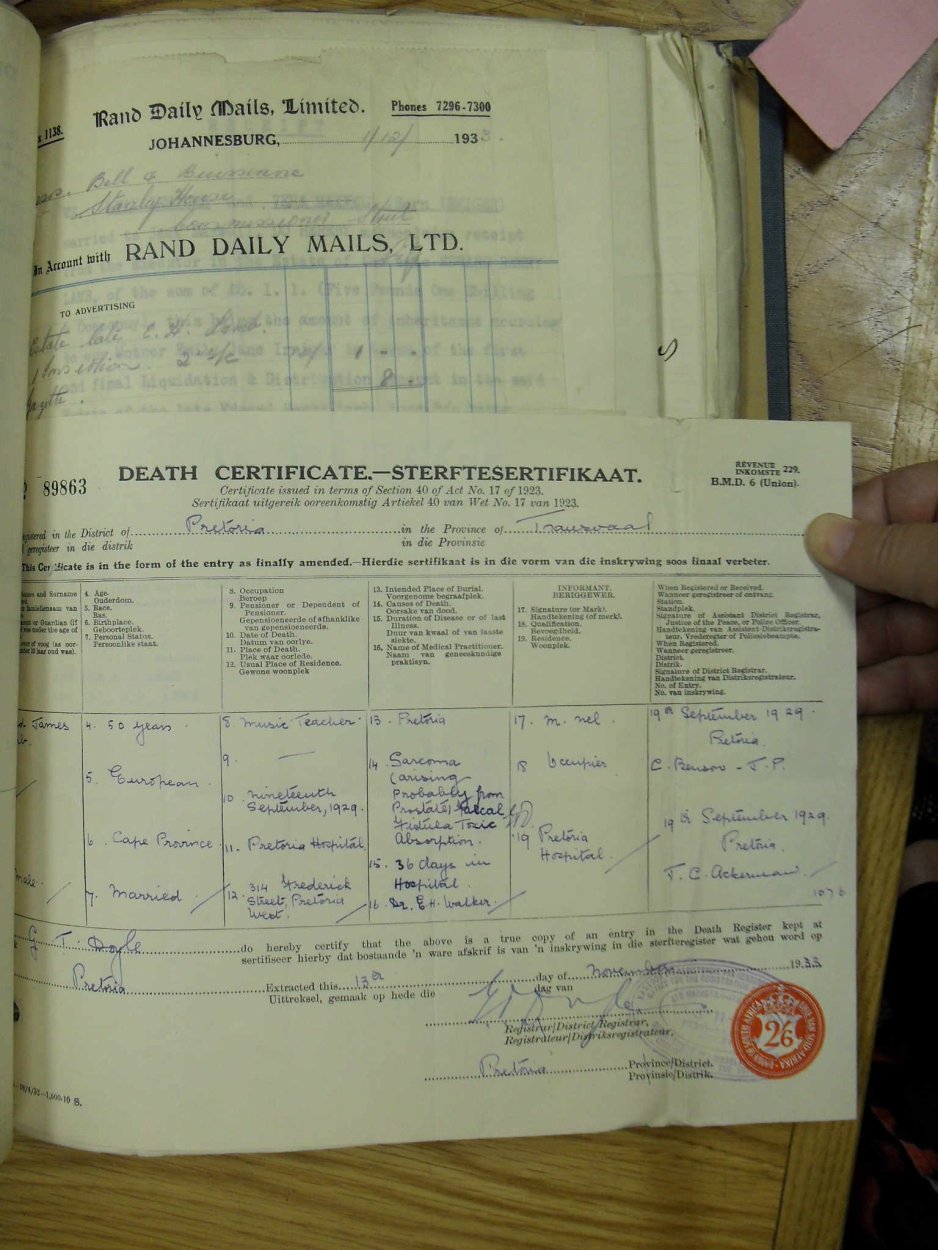 s 1138.
Rand Daily Mails, Limited. Phones 7296-7300
JOHANNESBURG, 1/12/ 1933.
Bell &
Stanley House
Commissioner Street
In Account with RAND DAILY MAILS, LTD.
TO ADVERTISING
Estate late E. H.
Insertion 2 1 - -
Gazette. 8 -
89863
DEATH CERTIFICATE.—STERFTESERTIFIKAAT.
REVENUE
INKOMSTE 229.
B.M.D. 6 (Union).
Certificate issued in terms of Section 40 of Act No. 17 of 1923.
Sertifikaat uitgereik ooreenkomstig Artiekel 40 van Wet No. 17 van 1923.
egistered in the District of Pretoria in the Province of Transvaal
geregistreer in die distrik in die Provinsie
This Certificate is in the form of the entry as finally amended.—Hierdie sertifikaat is in die vorm van die inskrywing soos finaal verbeter.
4. Age.
Ouderdom.
5. Race.
Ras.
6. Birthplace.
Geboorteplek.
7. Personal Status.
Persoonlike staat.
8. Occupation
Beroep
9. Pensioner or Dependent of
Pensioner.
Gepensioeneerde of afhanklike
van gepensioeneerde.
10. Date of Death.
Datum van oorlye.
11. Place of Death.
Plek waar oorlede.
12. Usual Place of Residence.
Gewone woonplek
13. Intended Place of Burial.
Voorgenome begraafplek.
14. Causes of Death.
Oorsake van dood.
15. Duration of Disease or of last
Illness.
Duur van kwaal of van laaste
siekte.
16. Name of Medical Practitioner.
Naam van geneeskundige
praktisyn.
INFORMANT.
BERIGGEWER.
17. Signature (or Mark).
Handtekening (of merk).
18. Qualification.
Bevoegdheid.
19. Residence.
Woonplek.
When Registered or Received.
Wanneer geregistreer of ontvang.
Station.
Standplek.
Signature of Assistant District Registrar,
Justice of the Peace, or Police Officer.
Handtekening van Assistent-Distriksregistra-
teur, Vrederegter of Poliesiebeampte.
When Registered.
Wanneer geregistreer.
District.
Distrik.
Signature of District Registrar.
Handtekening van Distriksregistrateur.
No. of Entry.
No. van inskrywing.
James
male.
4. 50 years
5. European.
6. Cape Province
7. Married
8. Music Teacher.
9. —
10. Nineteenth
September, 1929.
11. Pretoria Hospital
12. 314 Frederick
Street, Pretoria
West.
13. Pretoria
14. Sarcoma
(arising
probably from
Prostate) Faecal
Fistula Toxic
Absorption.
15. 36 days in
Hospital.
16. Dr. E.H. Walker.
17. M. Nel
18 Occupier
19 Pretoria
Hospital.
19th September 1929.
Pretoria.
C. Benson - J.P.
19th September 1929.
Pretoria.
T. C. Ackerman.
1076
G T. Doyle do hereby certify that the above is a true copy of an entry in the Death Register kept at
sertifiseer hierby dat bostaande 'n ware afskrif is van 'n inskrywing in die sterfteregister wat gehou word op
Pretoria Extracted this 13th day of November 1933
Uittreksel, gemaak op hede die dag van
Registrar/District Registrar.
Registrateur/Distriksregistrateur.
Pretoria Province/District.
Provinsie/Distrik.
2/6